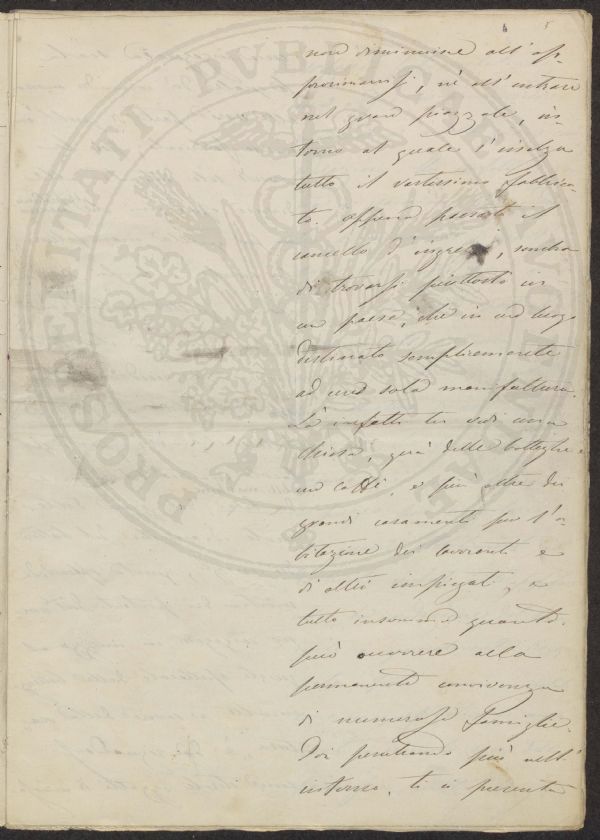 non diminuisce all'ap-
prossimarsi, nè all'entrare
nel gran piazzale, in-
torno al quale s'innalza
tutto il vastissimo fabbrica-
to. Appena passato il
cancello d'ingresso, sembra
di trovarsi piuttosto in
un paese, che in un luogo
destinato semplicemente
ad una sola manifattura.
Là infatti tu vedi una
chiesa, quà delle botteghe e
un caffè, e più oltre dei
grandi casamenti per l'a-
bitazione dei lavoranti e
di altri impiegati, e
tutto insomma quanto
può occorrere alla
permanente convivenza
di numerose famiglie.
Poi penetrando più nell'
interno, ti si presenta
PROSPERITATI PUBLICAE AUGENDAE